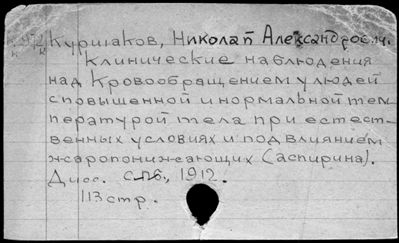 Куршаков, Николай Александрович.
Клинические наблюдения
над кровообращением у людей
с повышенной и нормальной тем
пературой тела при естест-
венных условиях и под влиянием
жаропонижающих (аспирина).
Дисс. СПб., 1912.
113 стр.